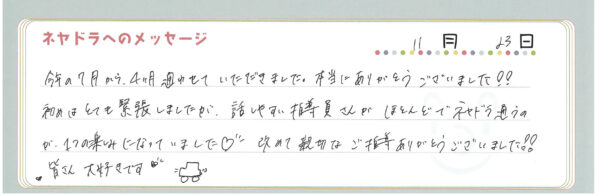 ネヤドラへのメッセージ
11月 23日
今年の7月から、4ヶ月通わせていただきました。本当にありがとうございました!!
初めはとても緊張しましたが、話しやすい指導員さんがほとんどでネヤドラ通うの
が、1つの楽しみになっていました♡ 改めて親切なご指導ありがとうございました!!
皆さん大好きです